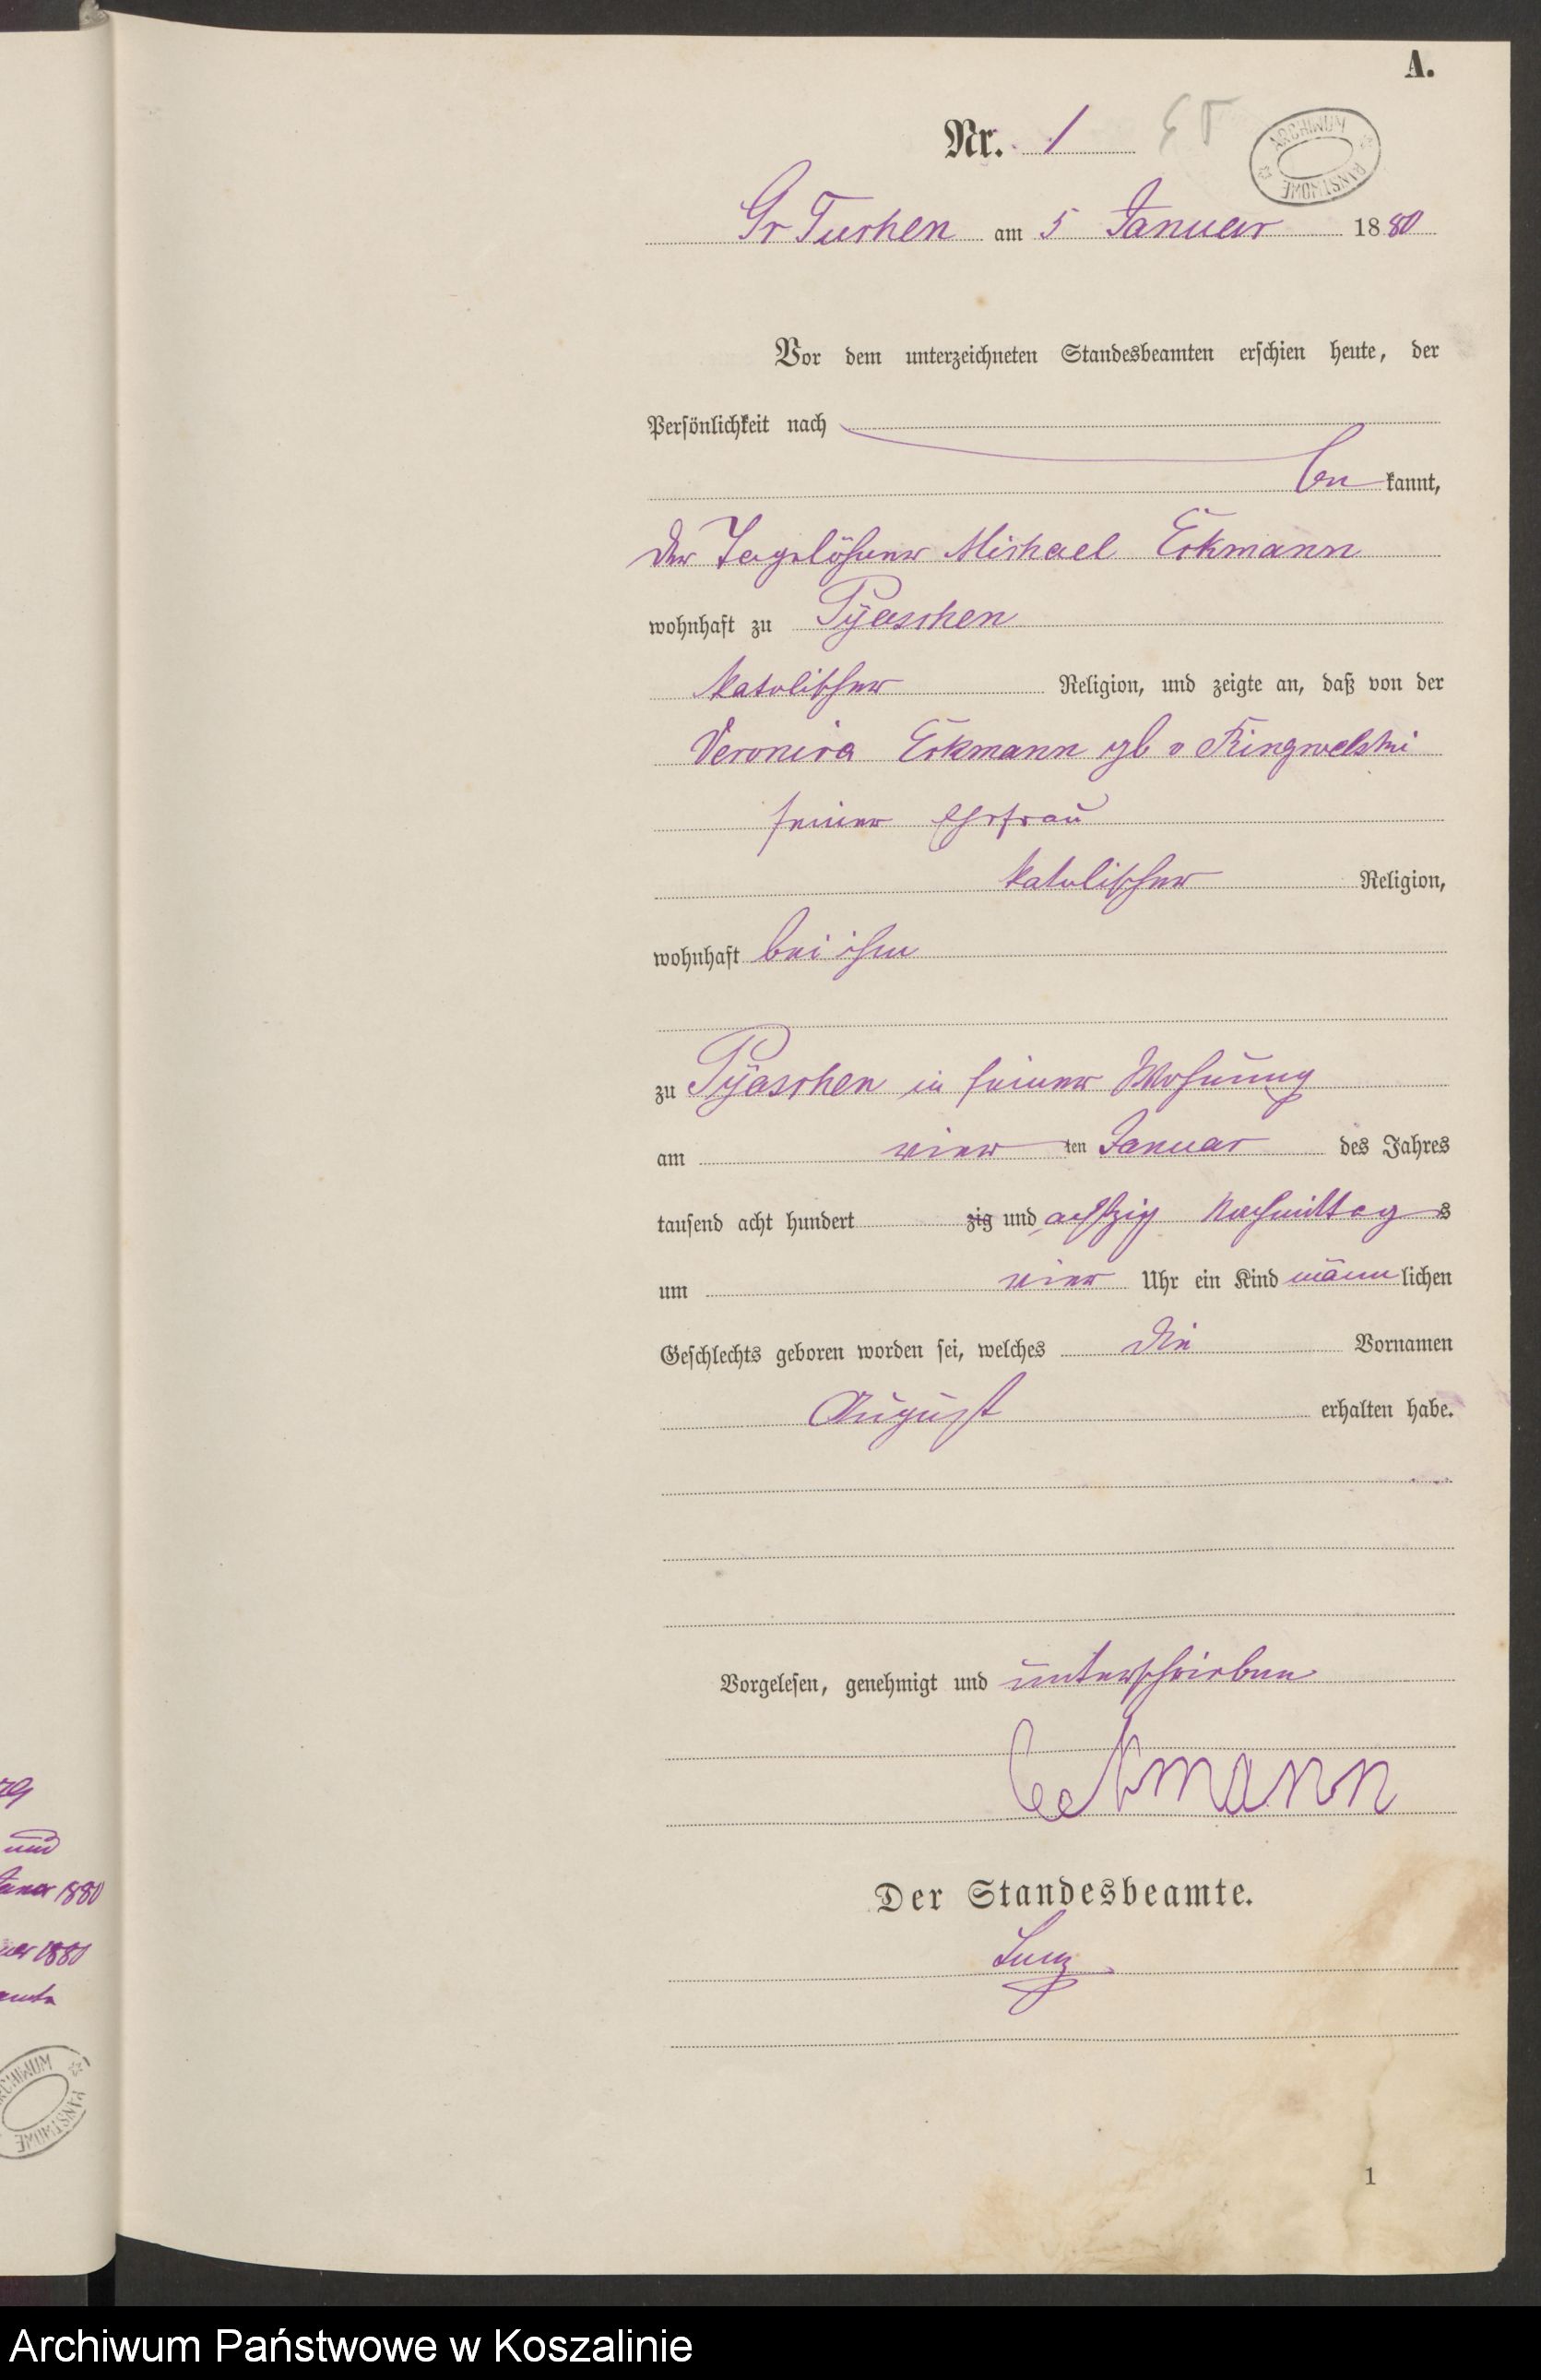 A.
Nr. 1
ARCHIWUM PAŃSTWOWE
Gr Tuchen am 5 Januar 1880
Vor dem unterzeichneten Standesbeamten erschien heute, der
Persönlichkeit nach
be kannt,
der Tagelöhner Michael Eckmann
wohnhaft zu Pyaschen
katolischer Religion, und zeigte an, daß von der
Veronica Eckmann geb v
seiner Ehefrau
katolischer Religion,
wohnhaft bei ihm
zu Pyaschen in seiner Wohnung
am vier ten Januar des Jahres
tausend acht hundert zig und achtzig Nachmittag s
um vier Uhr ein Kind männ lichen
Geschlechts geboren worden sei, welches die Vornamen
August erhalten habe.
Vorgelesen, genehmigt und unterschrieben
Eckmann
Der Standesbeamte.
1
und
1880
1880
ARCHIWUM PAŃSTWOWE
Archiwum Państwowe w Koszalinie